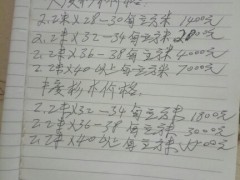 2.2米X28-30每立方米 1400元
2.2米X32-34每立方米 2800元
2.2米X36-38每立方米 4000元
2.2米X40以上每立方米 7000元
杉木价格.
2.2米X32-34每立方米 1800元
2.2米X36-38每立方米 3000元
2.2米X40以上每立方米